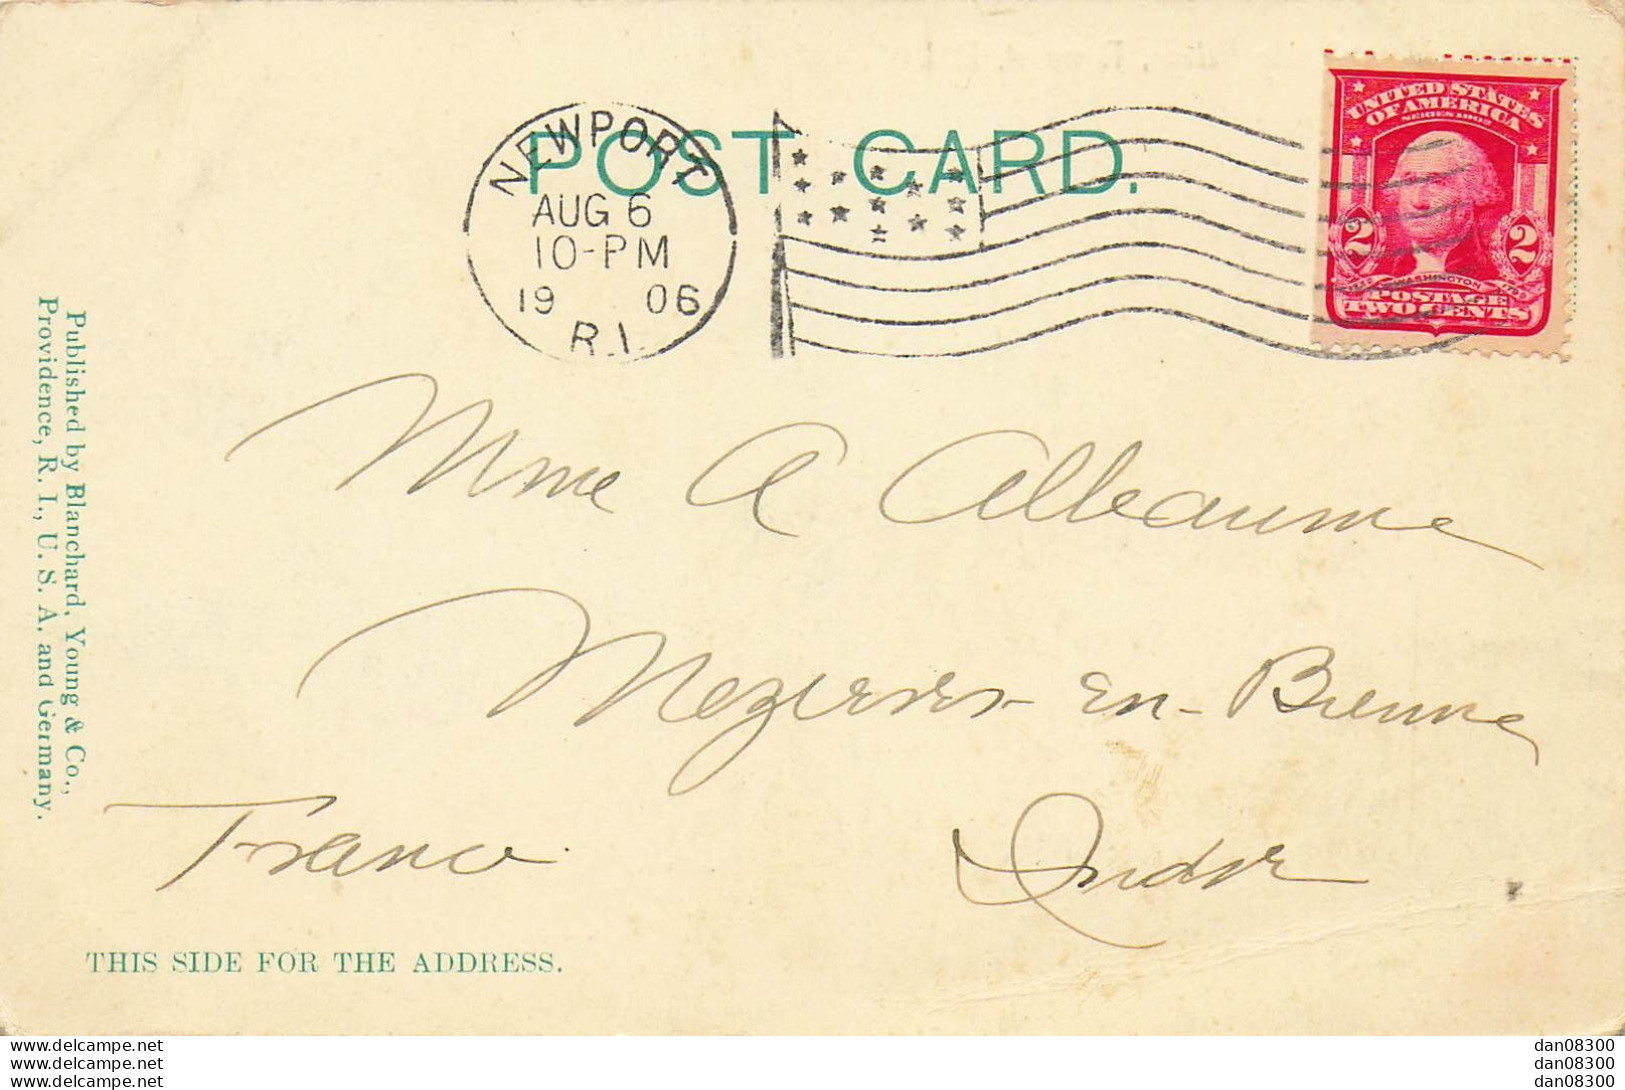 POST CARD.
NEWPORT
AUG 6
10-PM
19 06
R.I.
UNITED STATES
OF AMERICA
SERIES 1902
2 2
WASHINGTON
POSTAGE
TWO CENTS
Mme A Alleaume
Mezieres-en-Brenne
Indre
France
Published by Blanchard, Young & Co.,
Providence, R. I., U. S. A. and Germany.
THIS SIDE FOR THE ADDRESS.
www.delcampe.net
www.delcampe.net
www.delcampe.net
dan08300
dan08300
dan08300